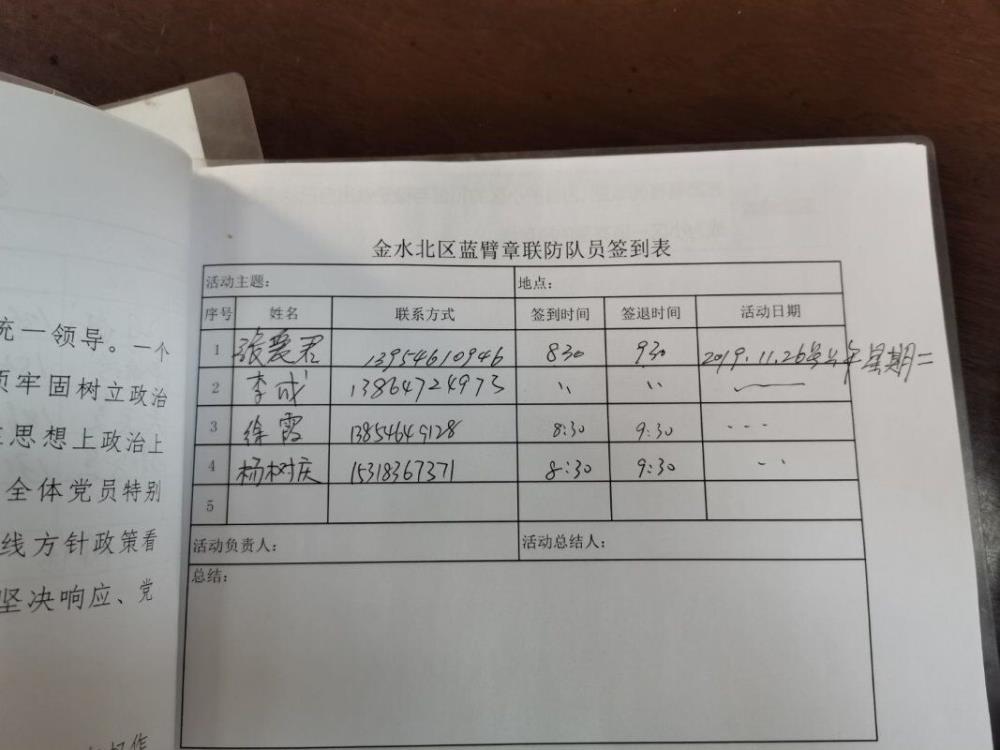 统一领导。一个
须牢固树立政治
在思想上政治上
全体党员特别
线方针政策看
坚决响应、党
金水北区蓝臂章联防队员签到表
活动主题: 地点:
序号 姓名 联系方式 签到时间 签退时间 活动日期
1 张爱君 13954610946 830 930 2019.11.26号上午星期二
2 李成 13864724973 〃 〃 ——
3 徐霞 13854649128 8:30 9:30 ---
4 杨树庆 15318367371 8:30 9:30 --
5
活动负责人: 活动总结人:
总结: